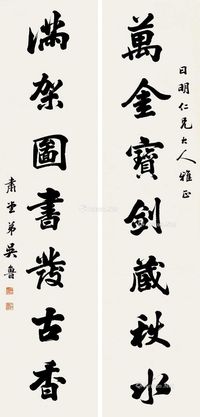 日明仁兄大人雅正
萬金寶劍藏秋水
滿架圖書發古香
肅堂弟吳魯